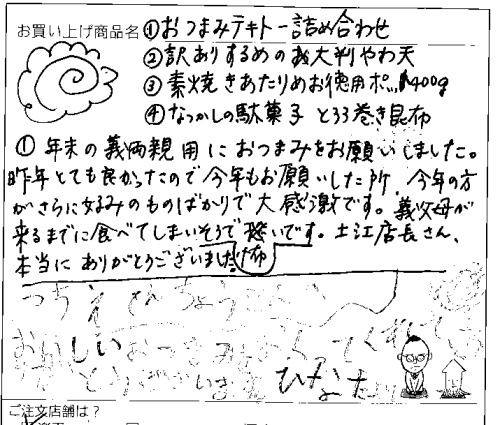 お買い上げ商品名 ①おつまみテキトー詰め合わせ
②訳ありするめの大判やわ天
③素焼きあたりめお徳用 400g
④なつかしの駄菓子 とろろ巻き昆布
① 年末の義両親用におつまみをお願いしました。
昨年とても良かったので今年もお願いした所、今年の方
がさらに好みのものばかりで大感激です。義父母が
来るまでに食べてしまいそうで怖いです。土江店長さん、
本当にありがとうございました
つちえてんちょうさん
おいしいおつまみ
ありがとうございます ひなたより
ご注文店舗は？